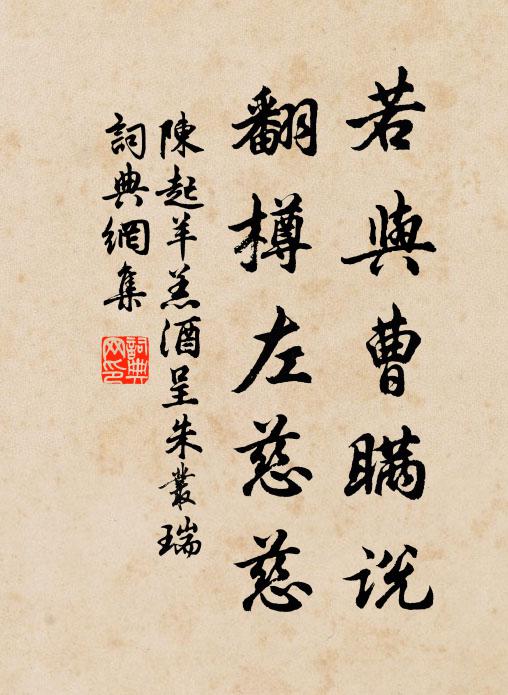 若與曹瞞説
翻樽左慈慈
陳起羊羔酒呈朱叢瑞
詞典網集
詞典網印